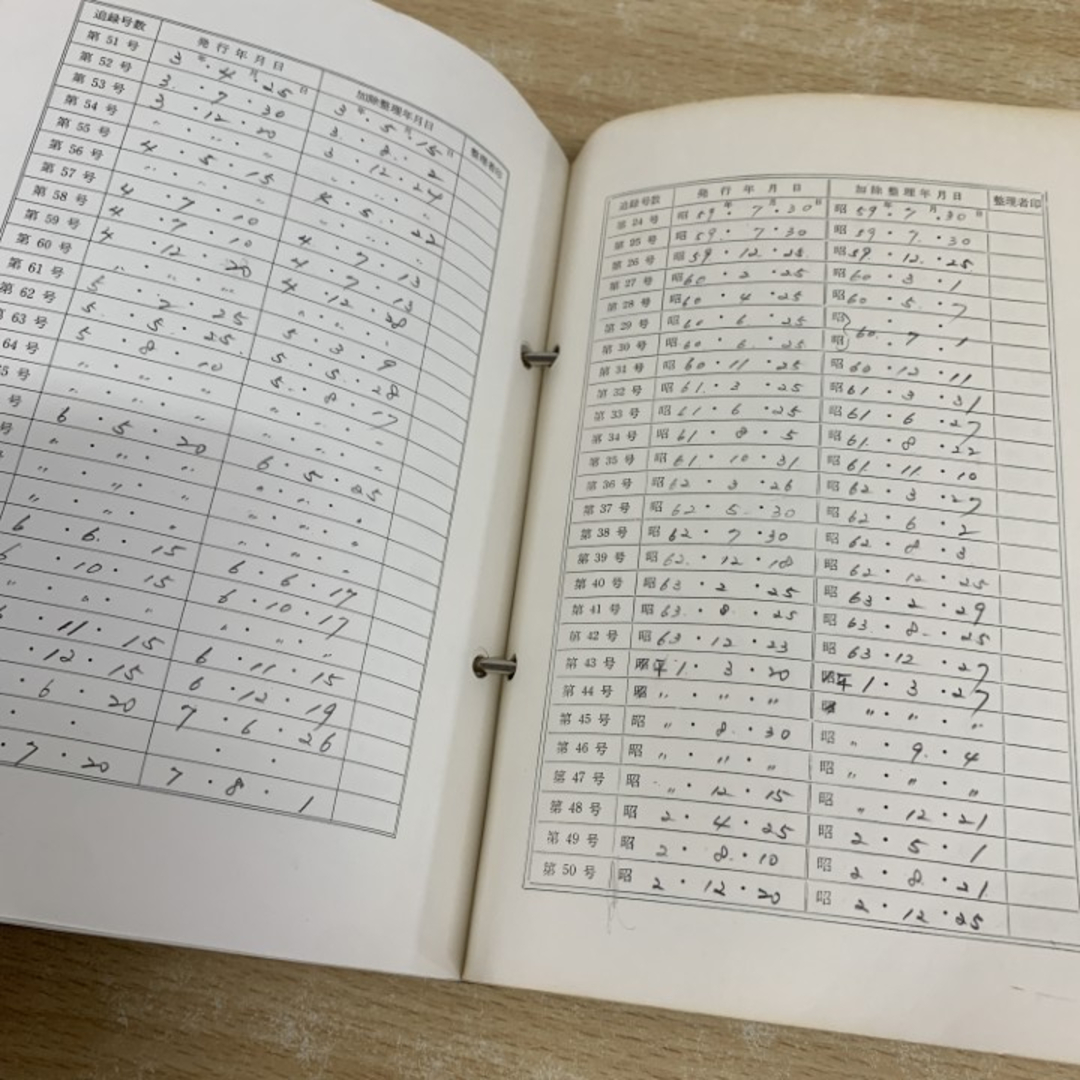 追録号数 発行年月日 加除整理年月日 整理者印
第51号 3年4月25日 3年5月15日
第52号 3・7・30 3・8・2
第53号 3・12・20 3・12・24
第54号 〃・〃・〃 〃・〃・〃
第55号 4・5・15 4・5・22
第56号 〃・〃・〃 〃・〃・〃
第57号 4・7・10 4・7・13
第58号 4・7・10 4・7・13
第59号 4・12・20 4・12・28
第60号 〃・〃・〃 〃・〃・〃
第61号 5・2・25 5・3・9
第62号 5・5・25 5・5・28
63号 5・8・10 5・8・17
64号 〃・〃・〃 〃・〃・〃
5号 〃・〃・〃 〃・〃・〃
号 6・5・20 6・5・25
〃・〃・〃 〃・〃・〃
〃・〃・〃 〃・〃・〃
〃・〃・〃 〃・〃・〃
6・6・15 6・6・17
6・10・15 6・10・17
〃・〃・〃 〃・〃・〃
・11・15 6・11・15
・12・15 6・12・19
・6・20 7・6・26
・ ・
・7・20 7・8・1
追録号数 発行年月日 加除整理年月日 整理者印
第24号 昭59年7・30日 昭59年7月30日
第25号 昭59・7・30 昭59・7・30
第26号 昭59・12・25 昭59・12・25
第27号 昭60・2・25 昭60・3・1
第28号 昭60・4・25 昭60・5・7
第29号 昭60・6・25 昭
第30号 昭60・6・25 昭60・7・1
第31号 昭60・11・25 昭60・12・11
第32号 昭61・3・25 昭61・3・31
第33号 昭61・6・25 昭61・6・27
第34号 昭61・8・5 昭61・8・22
第35号 昭61・10・31 昭61・11・10
第36号 昭62・3・26 昭62・3・27
第37号 昭62・5・30 昭62・6・2
第38号 昭62・7・30 昭62・8・3
第39号 昭62・12・18 昭62・12・25
第40号 昭63・2・25 昭63・2・29
第41号 昭63・8・25 昭63・8・25
第42号 昭63・12・23 昭63・12・27
第43号 昭平1・3・20 昭平1・3・27
第44号 昭〃・〃・〃 昭〃・〃・〃
第45号 昭〃・8・30 昭〃・9・4
第46号 昭〃・〃・〃 昭〃・〃・〃
第47号 昭〃・12・15 昭〃・12・21
第48号 昭2・4・25 昭2・5・1
第49号 昭2・8・10 昭2・8・21
第50号 昭2・12・20 昭2・12・25